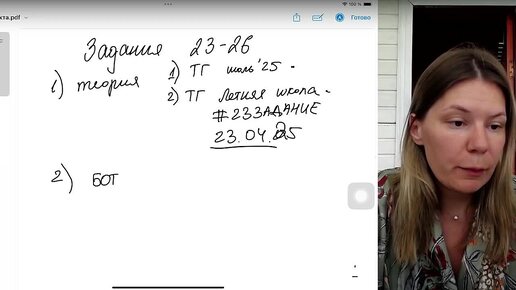 кта.pdf
100 %
Готово
Задания 23-26
1) теория
1) ТГ июль'25 -
2) ТГ Летняя школа -
#23ЗАДАНИЕ
23.04.25
2) БОТ